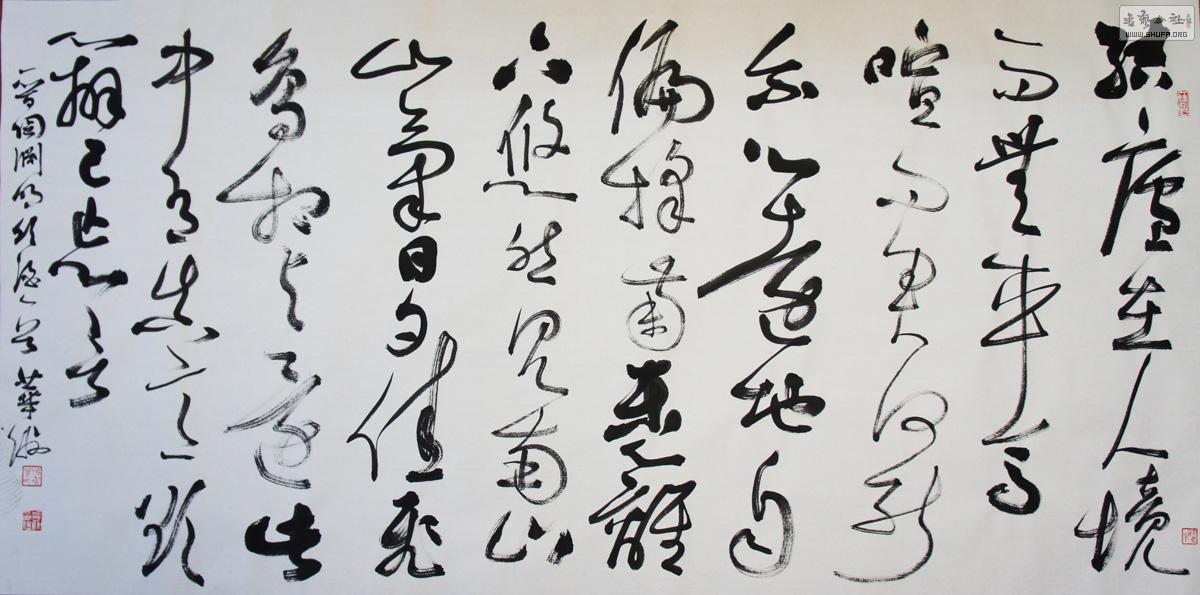 結廬在人境
而無車馬
喧問君何能
爾心遠地自
偏採菊東籬
下悠然見南山
山氣日夕佳飛
鳥相與還此
中有真意欲
辨已忘言
晉陶淵明飲酒一首
书艺公社
WWW.SHUFA.ORG